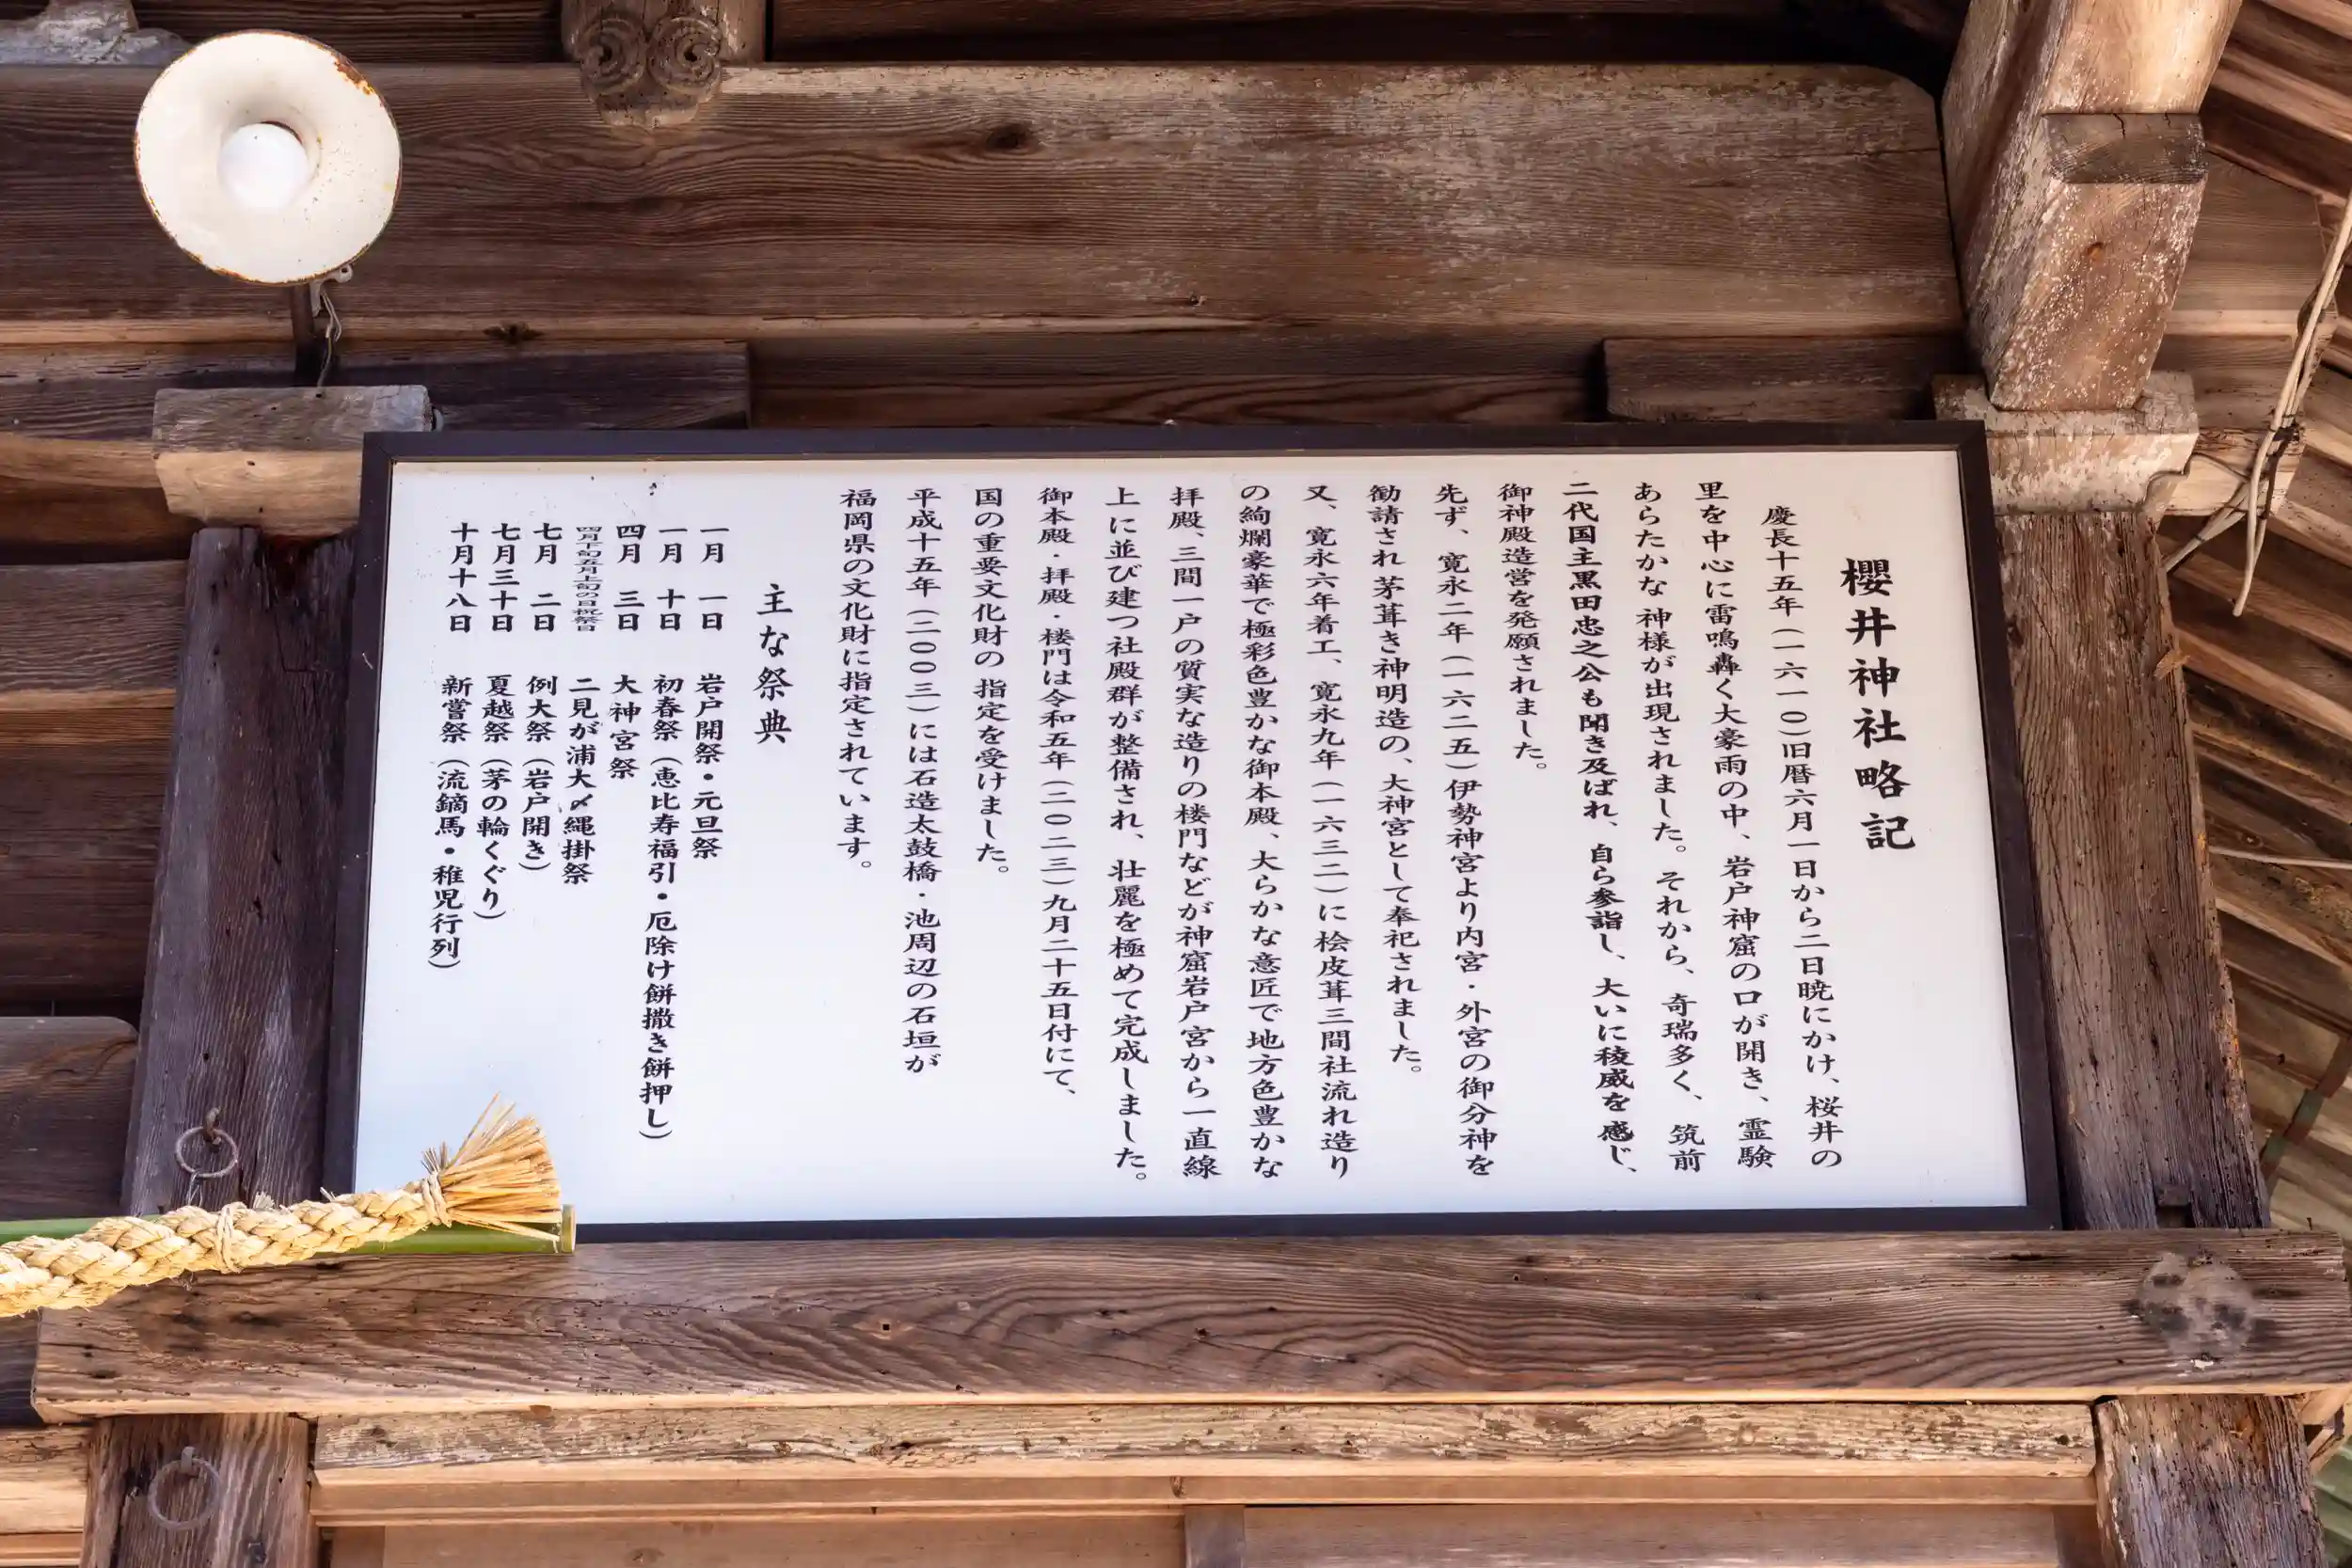 櫻井神社略記
慶長十五年(一六一〇)旧暦六月一日から二日暁にかけ、桜井の
里を中心に雷鳴轟く大豪雨の中、岩戸神窟の口が開き、霊験
あらたかな神様が出現されました。それから、奇瑞多く、筑前
二代国主黒田忠之公も聞き及ばれ、自ら参詣し、大いに稜威を感じ、
御神殿造営を発願されました。
先ず、寛永二年(一六二五)伊勢神宮より内宮・外宮の御分神を
勧請され茅葺き神明造の、大神宮として奉祀されました。
又、寛永六年着工、寛永九年(一六三二)に桧皮葺三間社流れ造り
の絢爛豪華で極彩色豊かな御本殿、大らかな意匠で地方色豊かな
拝殿、三間一戸の質実な造りの楼門などが神窟岩戸宮から一直線
上に並び建つ社殿群が整備され、壮麗を極めて完成しました。
御本殿・拝殿・楼門は令和五年(二〇二三)九月二十五日付にて、
国の重要文化財の指定を受けました。
平成十五年(二〇〇三)には石造太鼓橋・池周辺の石垣が
福岡県の文化財に指定されています。
主な祭典
一月 一日 岩戸開祭・元旦祭
一月 十日 初春祭(恵比寿福引・厄除け餅撒き餅押し)
四月 三日 大神宮祭
四月下旬五月上旬の日祝祭日 二見が浦大〆縄掛祭
七月 二日 例大祭(岩戸開き)
七月三十日 夏越祭(茅の輪くぐり)
十月十八日 新嘗祭(流鏑馬・稚児行列)